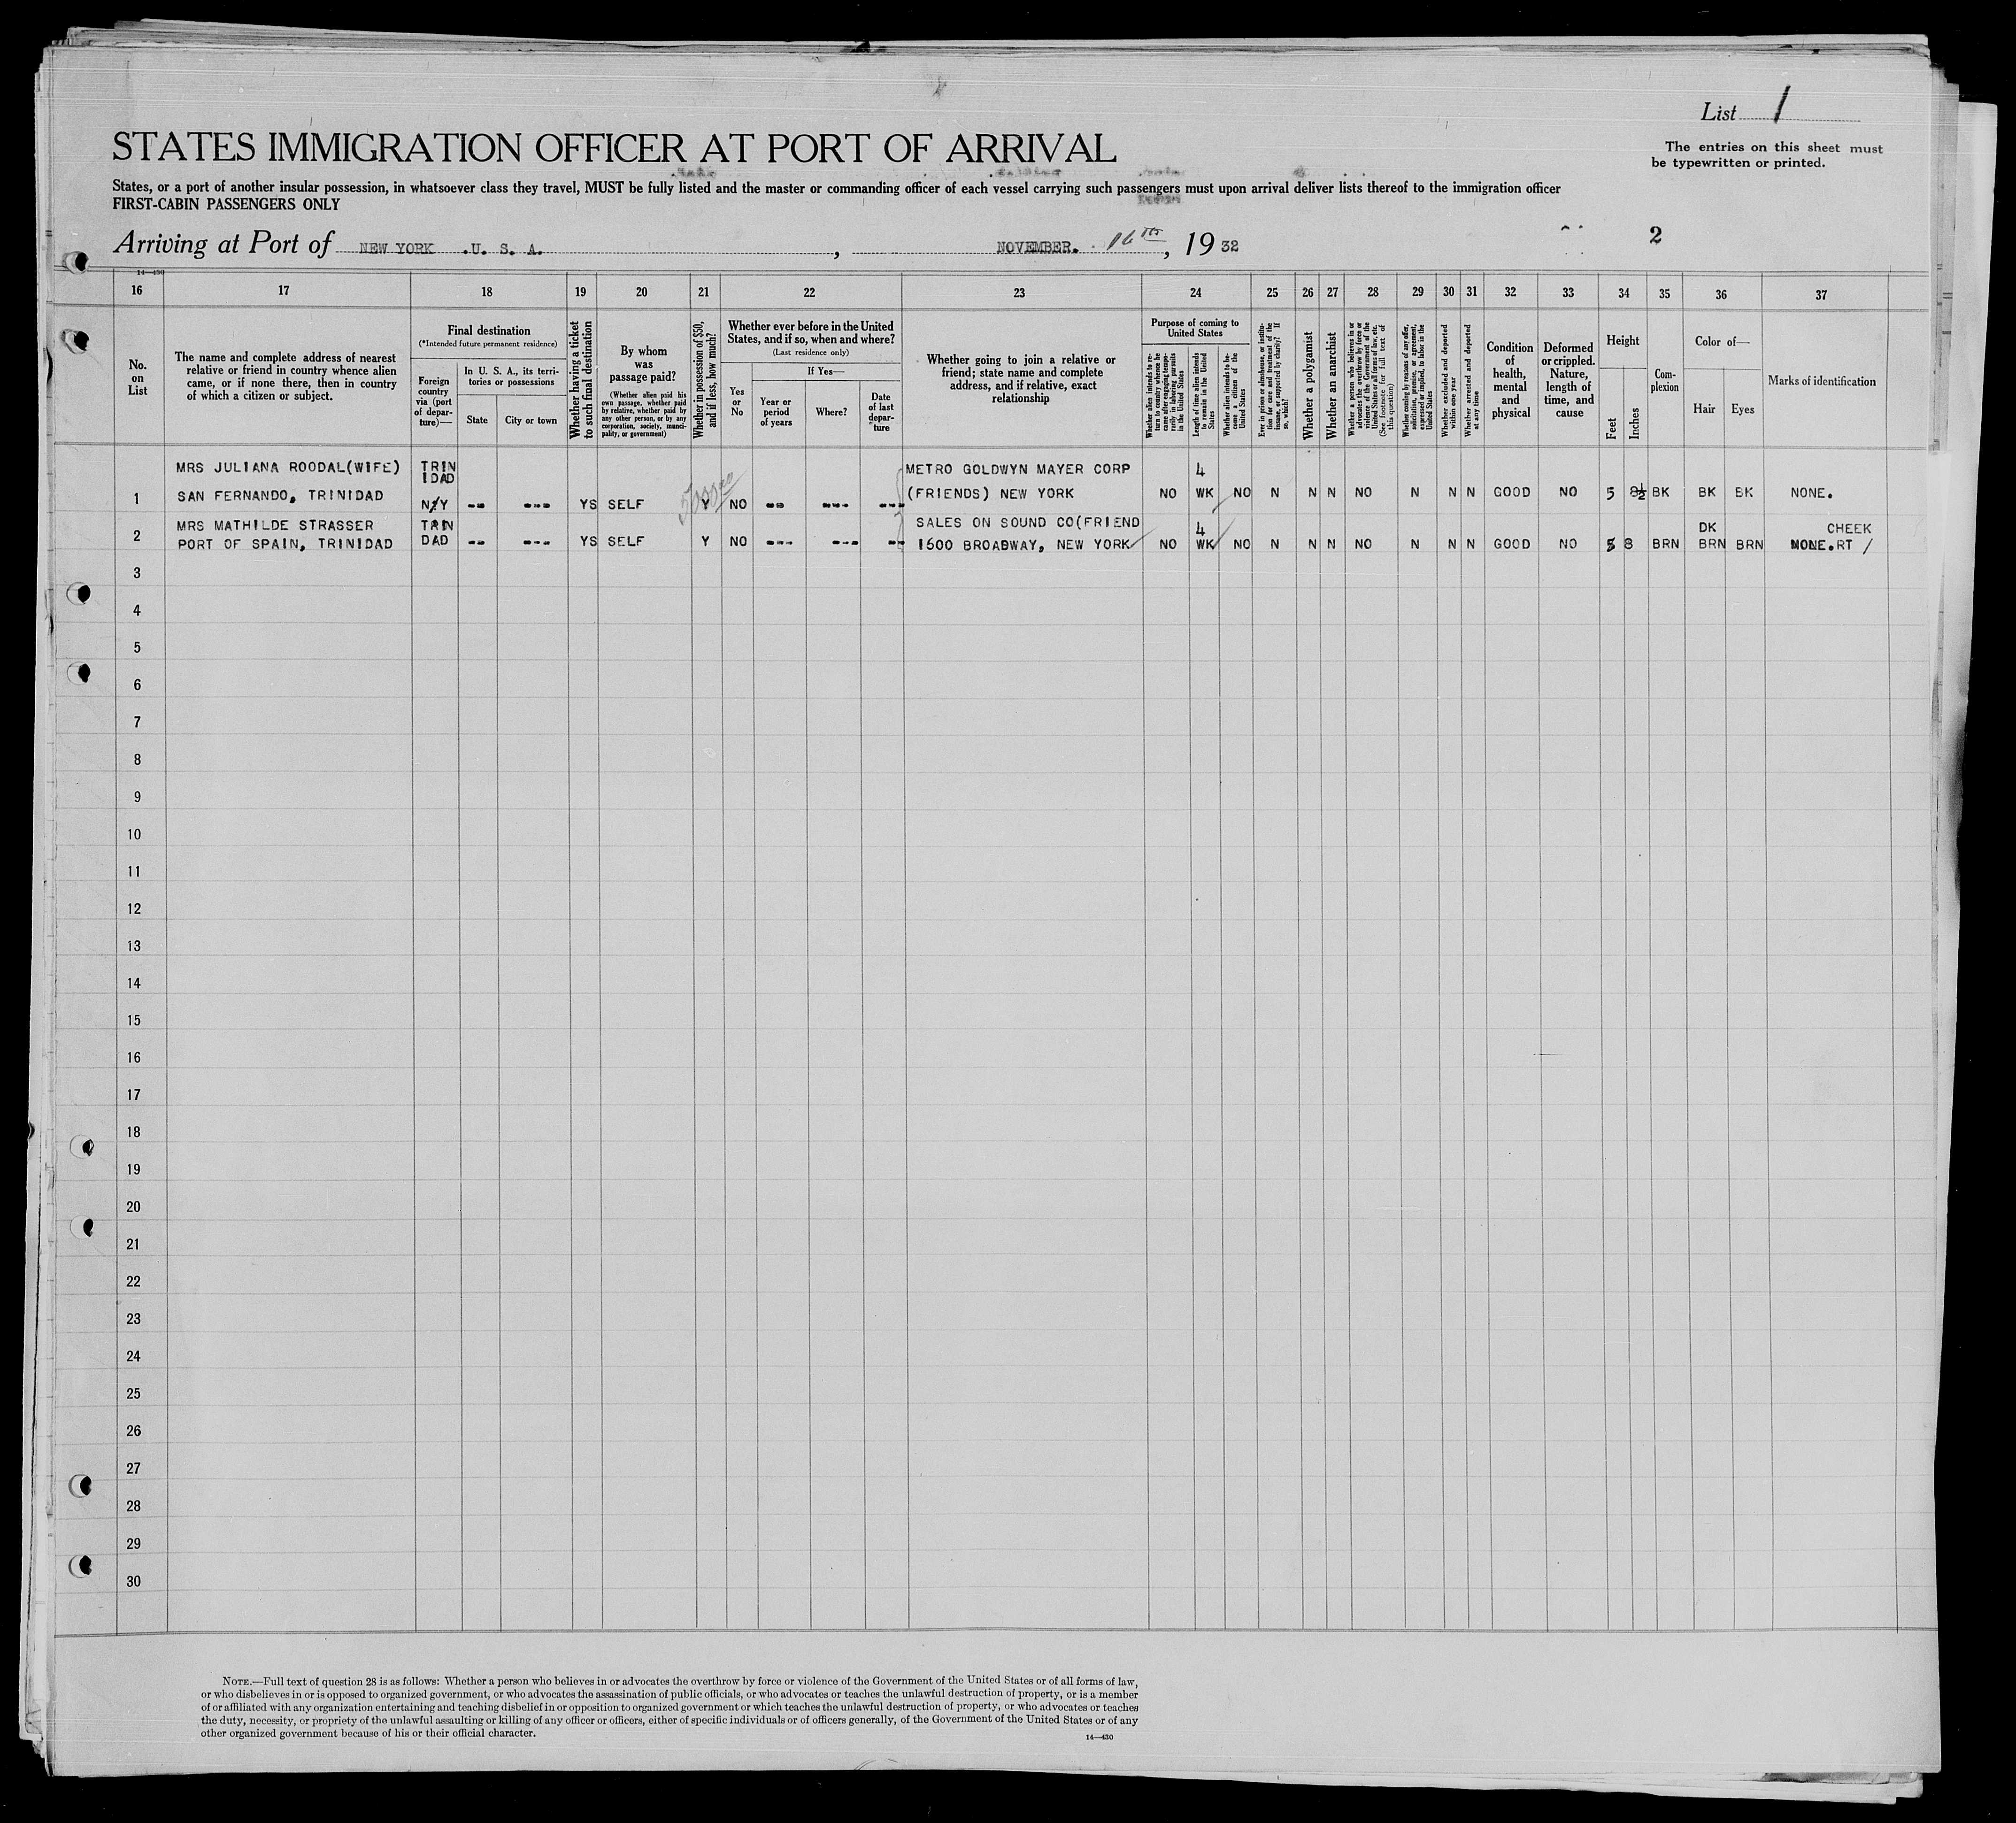 List 1
STATES IMMIGRATION OFFICER AT PORT OF ARRIVAL
The entries on this sheet must
be typewritten or printed.
States, or a port of another insular possession, in whatsoever class they travel, MUST be fully listed and the master or commanding officer of each vessel carrying such passengers must upon arrival deliver lists thereof to the immigration officer
FIRST-CABIN PASSENGERS ONLY
Arriving at Port of NEW YORK .U. S. A. , NOVEMBER. 16th, 19 32
2
14—430
16 17 18 19 20 21 22 23 24 25 26 27 28 29 30 31 32 33 34 35 36 37
No.
on
List
The name and complete address of nearest
relative or friend in country whence alien
came, or if none there, then in country
of which a citizen or subject.
Final destination
(*Intended future permanent residence)
Foreign
country
via (port
of depar-
ture)—
In U. S. A., its terri-
tories or possessions
State
City or town
Whether having a ticket
to such final destination
By whom
was
passage paid?
(Whether alien paid his
own passage, whether paid
by relative, whether paid by
any other person, or by any
corporation, society, munici-
pality, or government)
Whether in possession of $50,
and if less, how much?
Whether ever before in the United
States, and if so, when and where?
(Last residence only)
Yes
or
No
If Yes—
Year or
period
of years
Where?
Date
of last
depar-
ture
Whether going to join a relative or
friend; state name and complete
address, and if relative, exact
relationship
Purpose of coming to
United States
Whether alien intends to re-
turn to country whence he
came after engaging tempo-
rarily in laboring pursuits
in the United States
Length of time alien intends
to remain in the United
States
Whether alien intends to be-
come a citizen of the
United States
Ever in prison or almshouse, or institu-
tion for care and treatment of the
insane, or supported by charity? If
so, which?
Whether a polygamist
Whether an anarchist
Whether a person who believes in or
advocates the overthrow by force or
violence of the Government of the
United States or all forms of law, etc.
(See footnote for full text of
this question)
Whether coming by reasons of any offer,
solicitation, promise, or agreement,
expressed or implied, to labor in the
United States
Whether excluded and deported
within one year
Whether arrested and deported
at any time
Condition
of
health,
mental
and
physical
Deformed
or crippled.
Nature,
length of
time, and
cause
Height
Feet
Inches
Com-
plexion
Color of—
Hair
Eyes
Marks of identification
MRS JULIANA ROODAL(WIFE) TRIN METRO GOLDWYN MAYER CORP 4
IDAD
1 SAN FERNANDO, TRINIDAD N/Y -- --- YS SELF Y NO -- --- --- (FRIENDS) NEW YORK NO WK NO N N N NO N N N GOOD NO 5 8½ BK BK BK NONE.
MRS MATHILDE STRASSER TRIN SALES ON SOUND CO(FRIEND 4 DK CHEEK
2 PORT OF SPAIN, TRINIDAD DAD -- --- YS SELF Y NO --- --- -- 1600 BROADWAY, NEW YORK NO WK NO N N N NO N N N GOOD NO 5 8 BRN BRN BRN NONE.RT /
3
4
5
6
7
8
9
10
11
12
13
14
15
16
17
18
19
20
21
22
23
24
25
26
27
28
29
30
NOTE.—Full text of question 28 is as follows: Whether a person who believes in or advocates the overthrow by force or violence of the Government of the United States or of all forms of law,
or who disbelieves in or is opposed to organized government, or who advocates the assassination of public officials, or who advocates or teaches the unlawful destruction of property, or is a member
of or affiliated with any organization entertaining and teaching disbelief in or opposition to organized government or which teaches the unlawful destruction of property, or who advocates or teaches
the duty, necessity, or propriety of the unlawful assaulting or killing of any officer or officers, either of specific individuals or of officers generally, of the Government of the United States or of any
other organized government because of his or their official character.
14—430